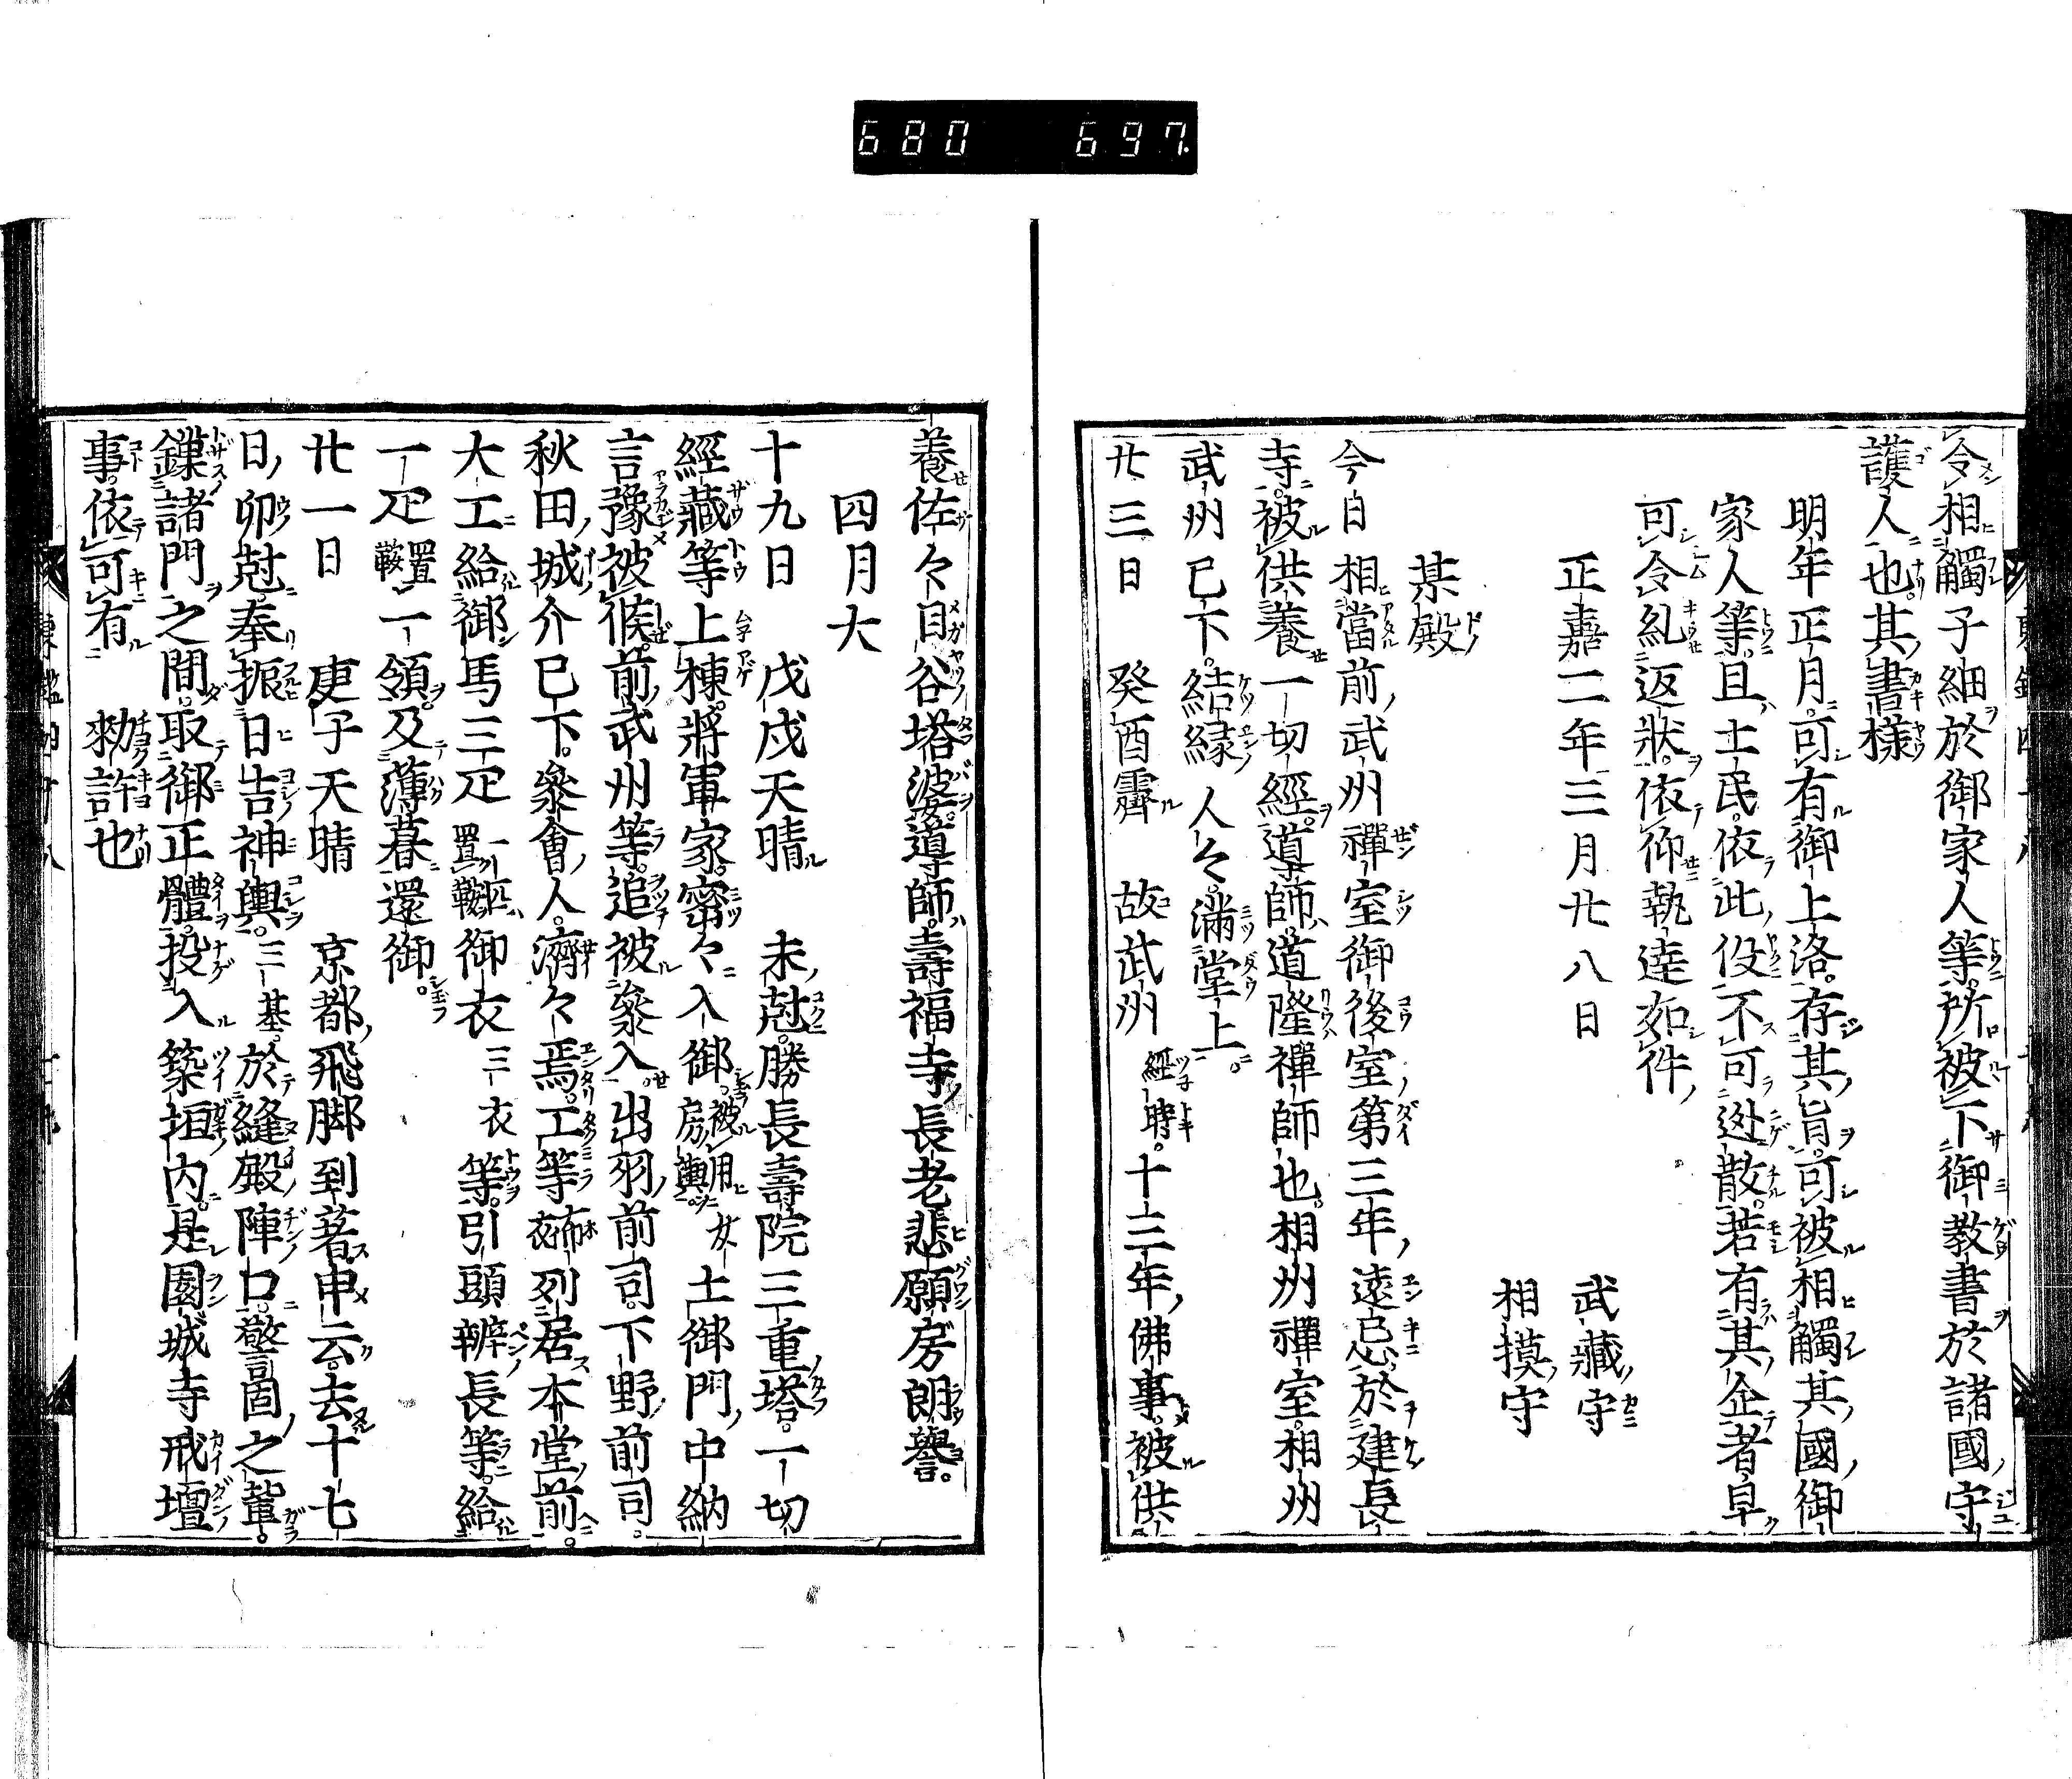 680 697.
令相觸子細於御家人等所被下御教書於諸國守
護人也其書樣
明年正月可有御上洛存其旨可被相觸其國御
家人等且土民依此役不可迯散若有其企者早
可令糺返狀依仰執達如件
正嘉二年三月廿八日
武藏守
相摸守
某殿
今日相當前武州禪室御後室第三年遠忌於建長
寺被供養一切經導師道隆禪師也相州禪室相州
武州已下結縁人々滿堂上
廿三日 癸酉霽 故武州經時十三年佛事被供
養佐々目谷塔婆導師壽福寺長老悲願房朗譽
四月大
十九日 戊戌天晴 未尅勝長壽院三重塔一切
經藏等上棟將軍家密々入御被用女房輿土御門中納
言豫被候前武州等追被參入出羽前司下野前司
秋田城介已下參會人濟々焉工等布衣列居本堂前
大工給御馬三疋一匹置鞍御衣三衣等引頭辨長等給
一疋置鞍一領及薄暮還御
廿一日 庚子天晴 京都飛脚到著申云去十七
日卯尅奉振日吉神輿三基於縫殿陣口警固之輩
鏁諸門之間取御正體投入築垣内是園城寺戒壇
事依可有 勅許也